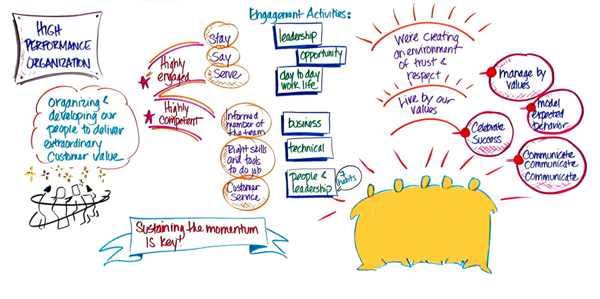 HIGH
PERFORMANCE
ORGANIZATION
Organizing &
developing our
people to deliver
extraordinary
Customer value
Highly
engaged
Highly
competent
Stay
Say
Serve
Informed
member of
the team
Right skills
and tools
to do job
Customer
Service
Engagement Activities:
leadership
opportunity
day to day
work life
business
technical
people &
leadership
7
habits
Sustaining the momentum
IS key!
We're creating
an environment
of trust &
respect
Live by our
values
manage by
values
model
expected
behavior
Celebrate
Success
Communicate
Communicate
Communicate